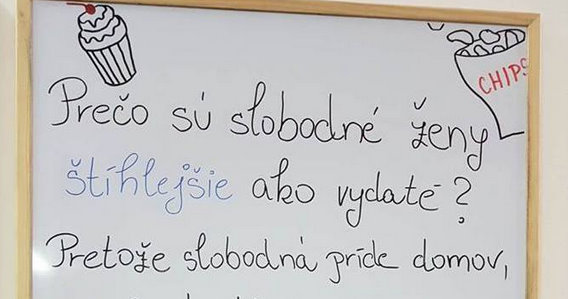 CHIPS
Prečo sú slobodné ženy
štíhlejšie ako vydaté?
Pretože slobodná príde domov,